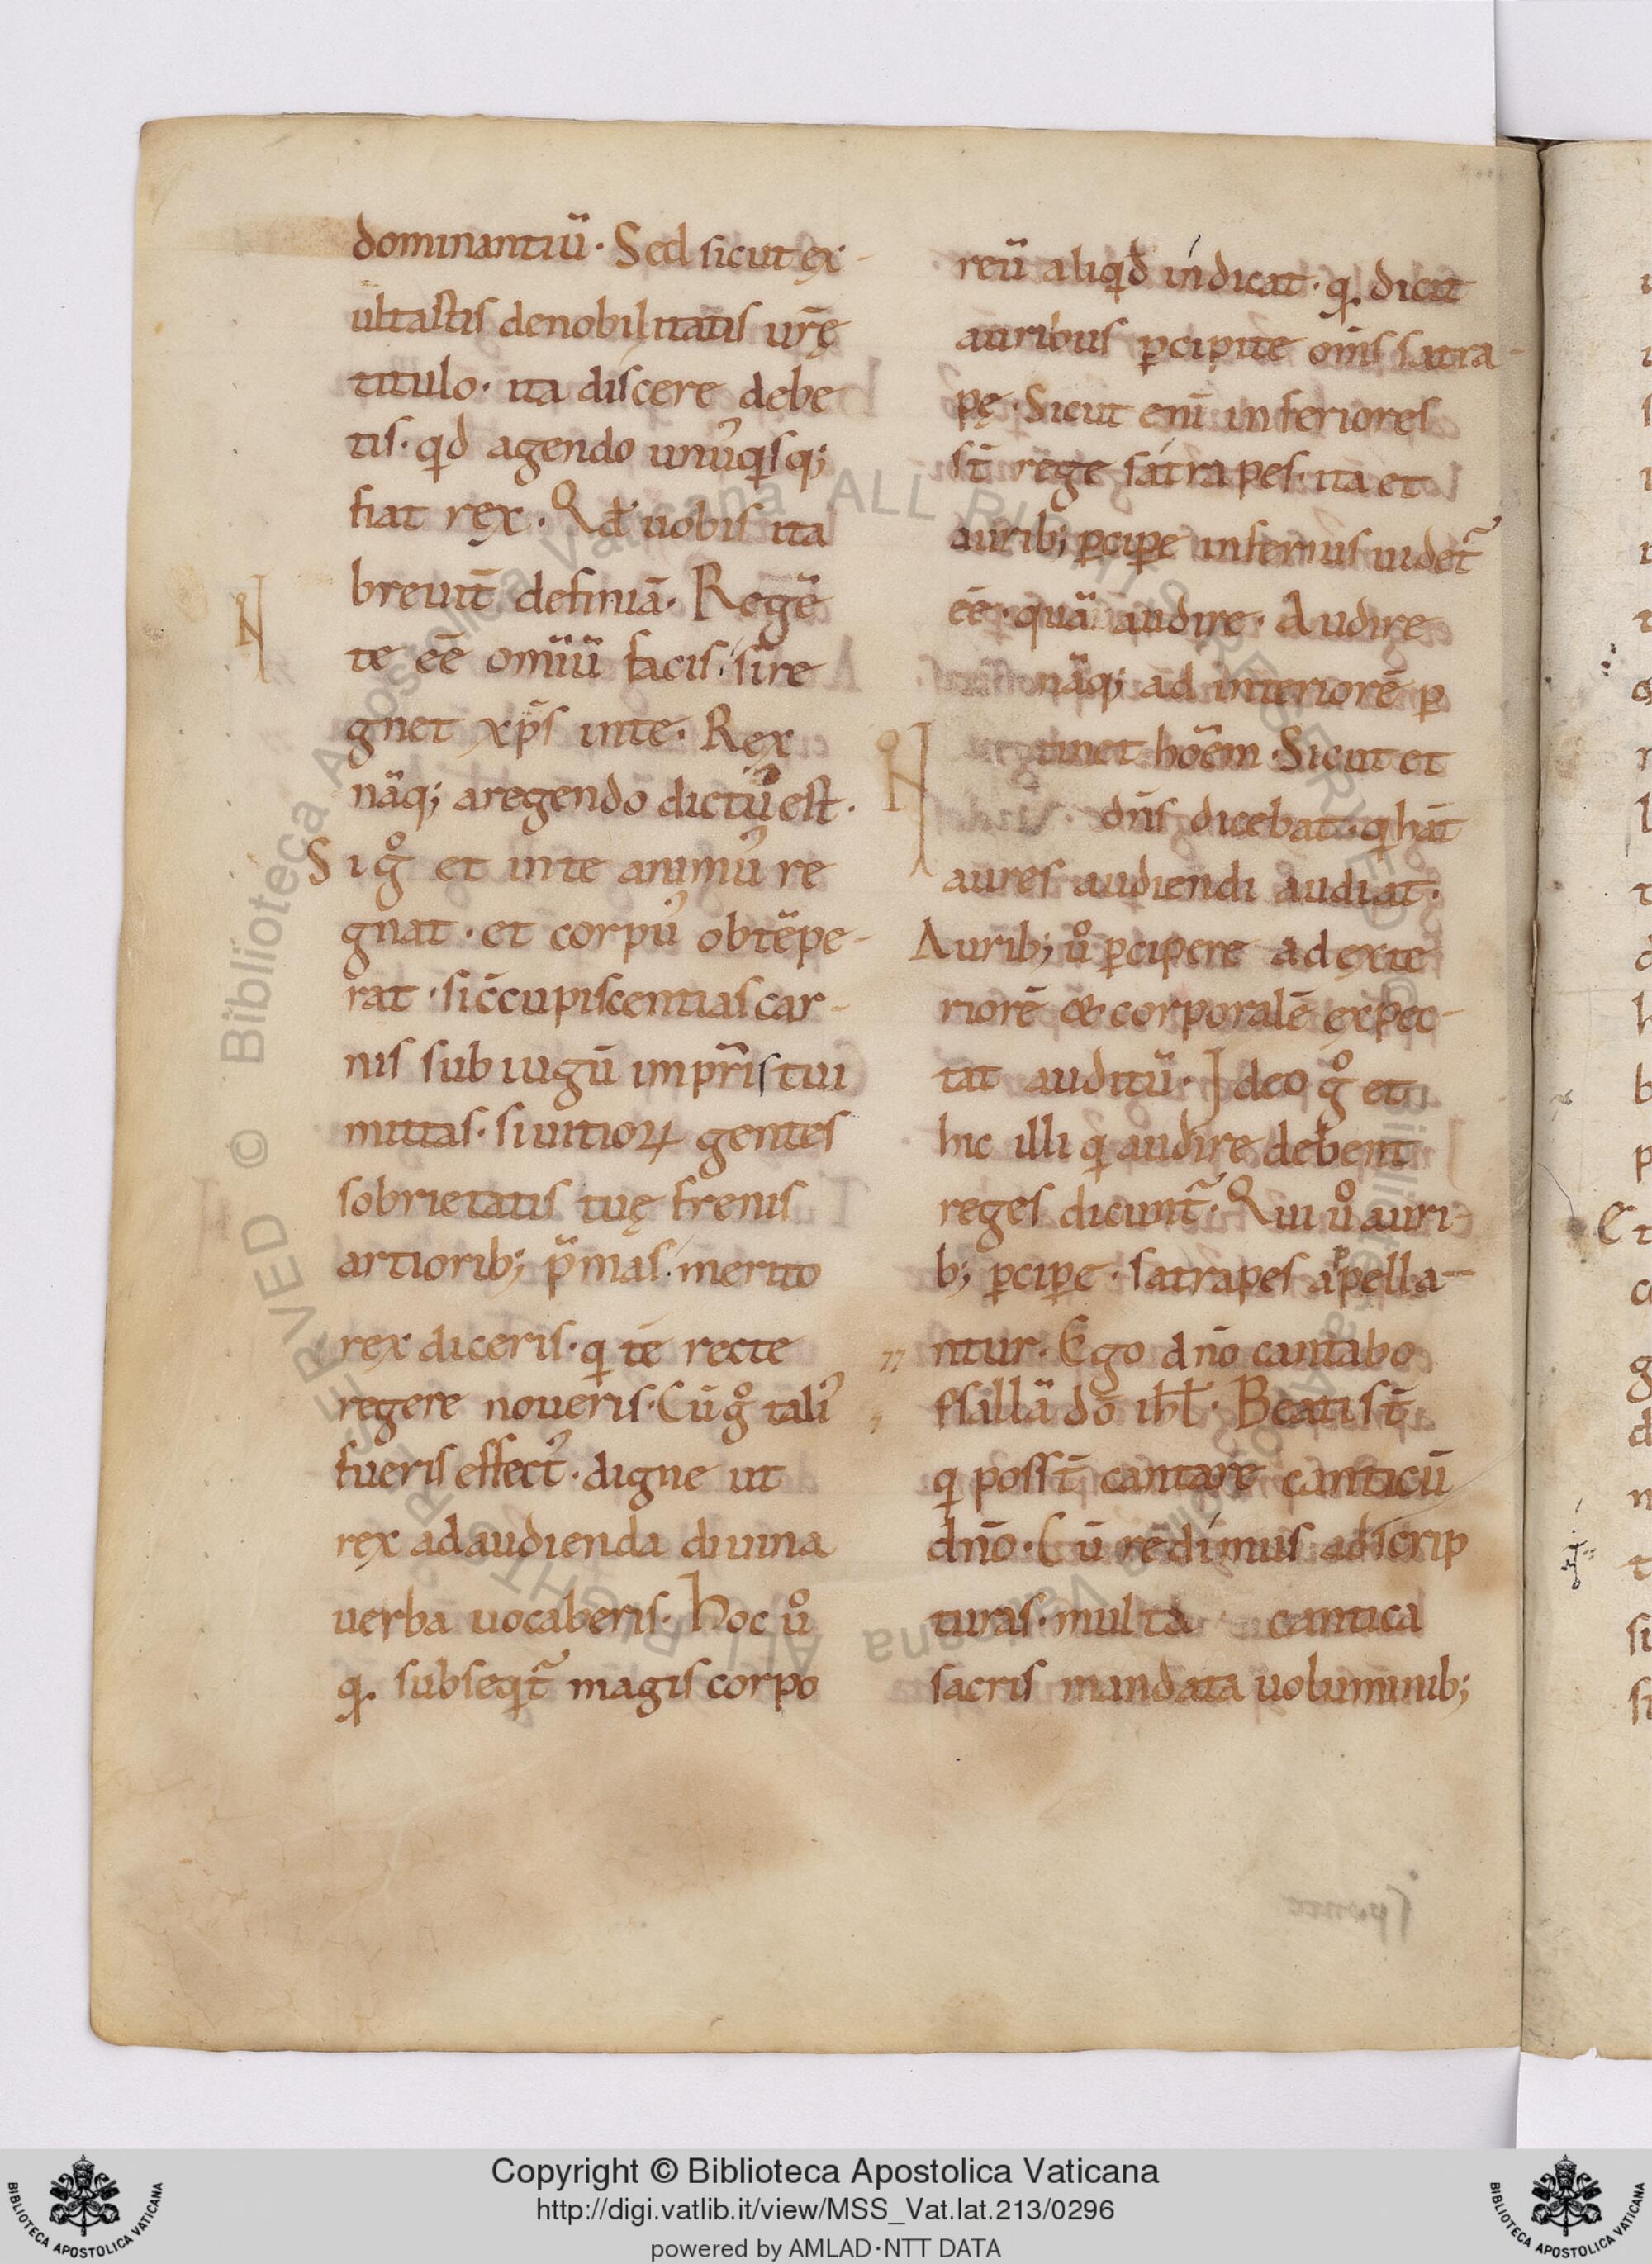 dominantiū· Sed sicut ex-
ultastis denobilitatis urę̄
titulo· ita discere debe
tis· qd agendo unuꝰqisq;
fiat rex· Qđ uobis ita
breuit̄ definiā· Regē
te eē omīū facis· si re
gnet xp̄s inte· Rex
nāq; aregendo dictuꝰ est·
Si gͦ et inte animuꝰ re
gnat· et corpuꝰ obtēpe-
rat· si ccupiscentias car-
nis sub iugū impr̄is tui
mittas· si uitioꝝ gentes
sobrietatis tuę frenis
artiorib; p̄mas· merito
rex diceris· q te recte
regere noueris· Cū gͦ taliꝰ
fueris effectꝰ· digne ut
rex ad audienda diuina
uerba uocaberis· Hoc uͦ
q. subseqt̄ magis corpo
reū aliqd indicat· q. dicit
auribus ꝑcipite om̄s satra-
pę· Sicut eni inferiores
st̄ rege satrapes· ita et
aurib; ꝑciꝑe inferius uidet̄
eē· quā audire· Audire
nāq; ad interiorē ꝑ
tinet hoēm· Sicut et
dn̄s dicebat· q hāt
aures audiendi audiat·
Aurib; uͦ ꝑcipere ad exte
riorē & corporalē expec-
tat auditū· Ideo gͦ et
hic illi q audire debent
reges dicunt̄· Qui uͦ auri
b; ꝑciꝑe· satrapes appella-
ntur· Ego dn̄o cantabo
psallā dō ihł· Beati st̄
q posst̄ cantare canticū
dn̄o· Cū redimus ad scrip
turas· multa cantica
sacris mandata uoluminib;
Copyright © Biblioteca Apostolica Vaticana
http://digi.vatlib.it/view/MSS_Vat.lat.213/0296
powered by AMLAD·NTT DATA